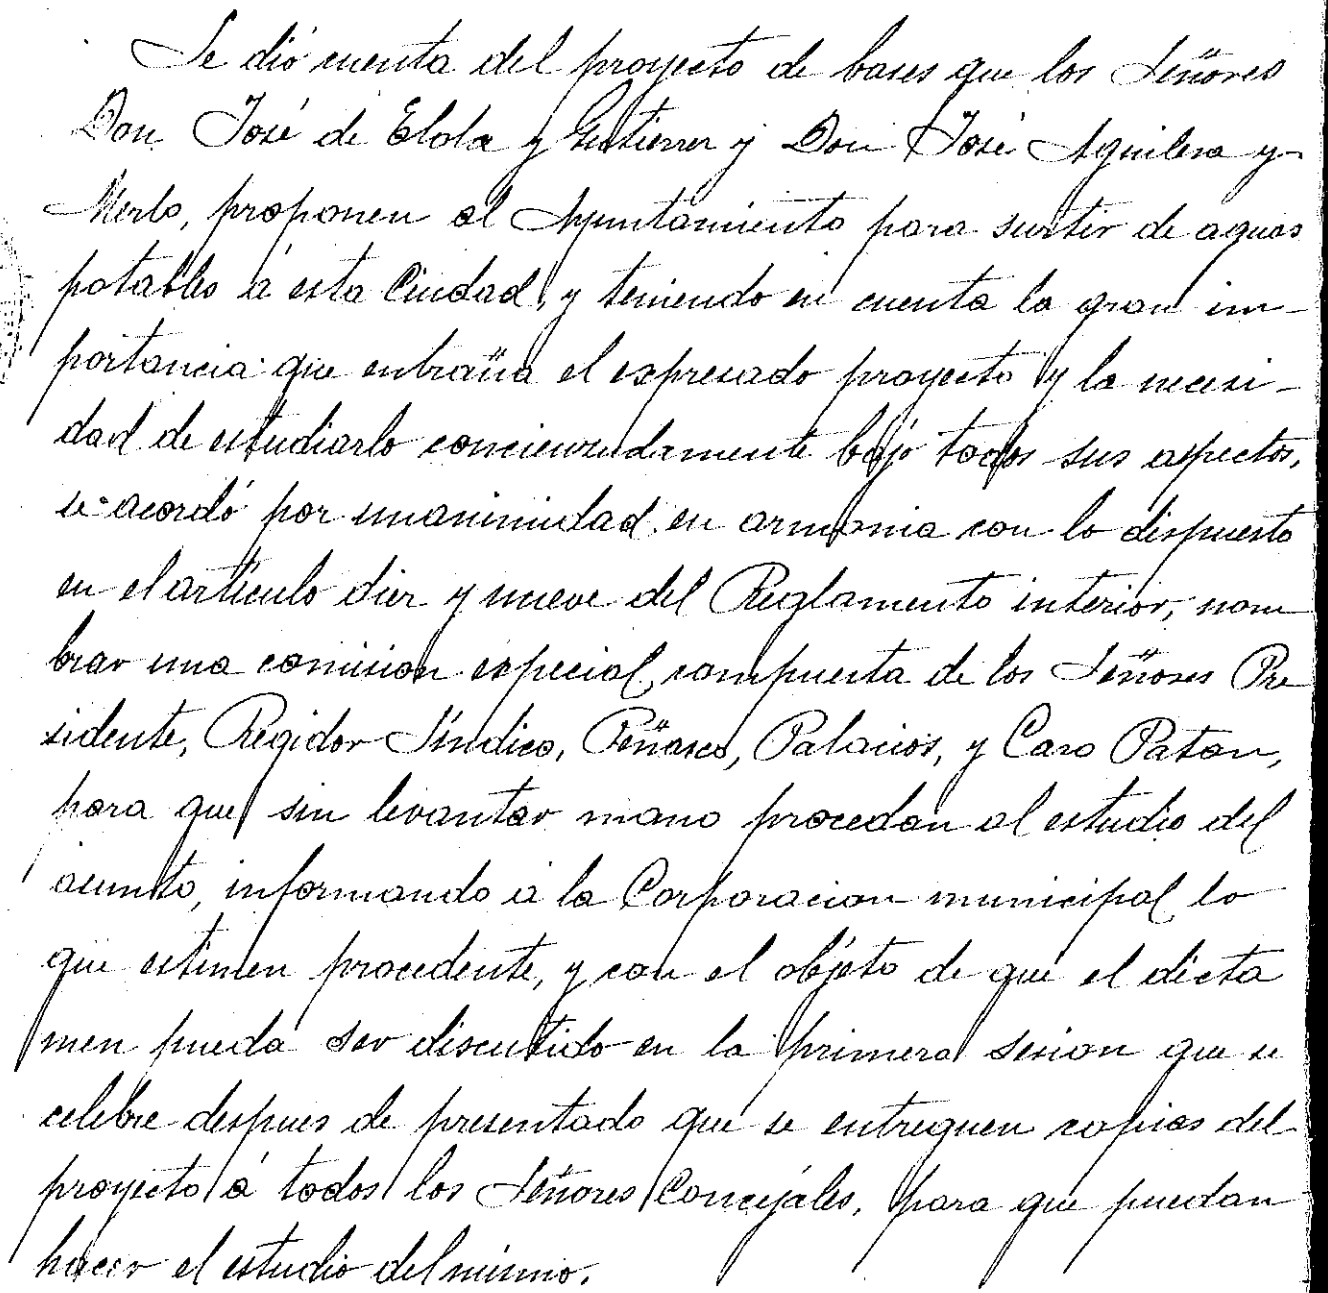 Se dió cuenta del proyecto de bases que los Señores
Don José de Elola y Gutierrez y Don José Aguilera y
Merlo, proponen al Ayuntamiento para surtir de aguas
potables á esta Ciudad, y teniendo en cuenta la gran im-
portancia que entraña el expresado proyecto y la necesi-
dad de estudiarlo concienzudamente bajo todos sus aspectos,
se acordó por unanimidad en armonia con lo dispuesto
en el artículo diez y nueve del Reglamento interior, nom
brar una comision especial compuesta de los Señores Pre
sidente, Regidor Síndico, Peñasco, Palacios, y Caro Paton,
para que sin levantar mano procedan al estudio del
asunto, informando á la Corporacion municipal lo
que estimen procedente, y con el objeto de que el dicta
men pueda ser discutido en la primera sesion que se
celebre despues de presentado que se entreguen copias del
proyecto á todos los Señores Concejales, para que puedan
hacer el estudio del mismo.